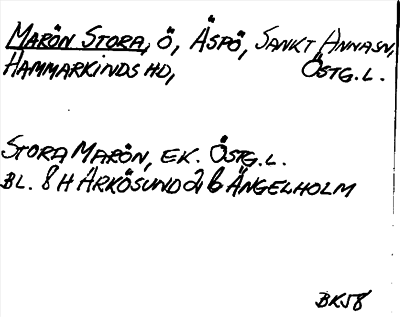 MARÖN STORA, Ö, ÄSPÖ, SANKT ANNASN,
HAMMARKINDS HD, ÖSTG.L.
STORA MARÖN, EK. ÖSTG.L.
BL. 8 H ARKÖSUND 2 b ÄNGELHOLM
BK58